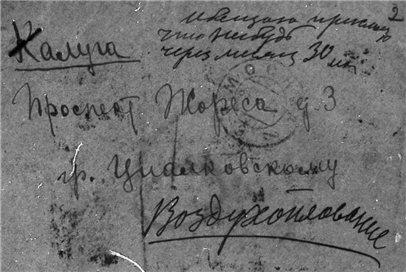 2
что нибудь
через месяц 30
Калуга
Проспект Жореса д. 3
гр. Циолковскому
Воздухоплавание